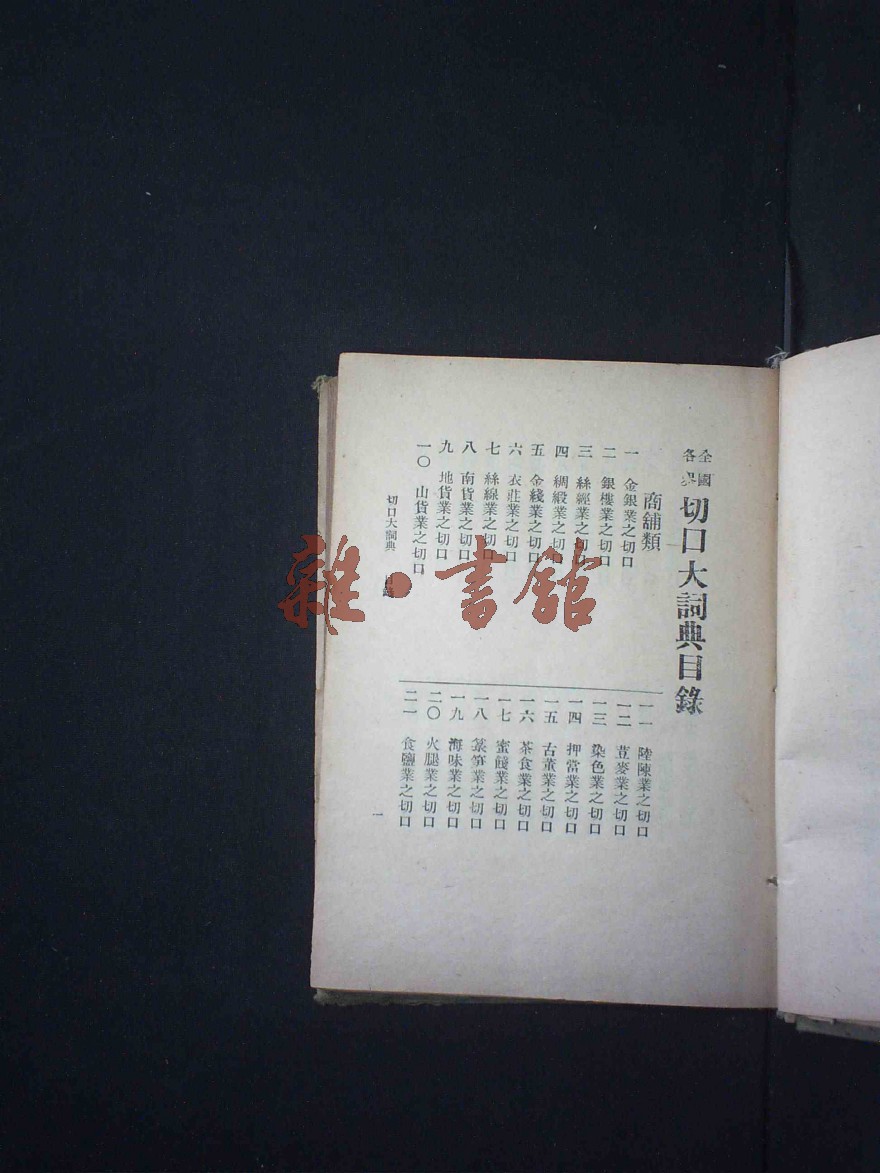 全國各界切口大詞典目錄
商舖類
一 金銀業之切口
二 銀樓業之切口
三 絲經業之切口
四 綢緞業之切口
五 金綫業之切口
六 衣莊業之切口
七 絲線業之切口
八 南貨業之切口
九 地貨業之切口
一〇 山貨業之切口
一一 陸陳業之切口
一二 荳麥業之切口
一三 染色業之切口
一四 押當業之切口
一五 古董業之切口
一六 茶食業之切口
一七 蜜餞業之切口
一八 菉笋業之切口
一九 海味業之切口
二〇 火腿業之切口
二一 食鹽業之切口
切口大詞典 目錄
一
雜·書館